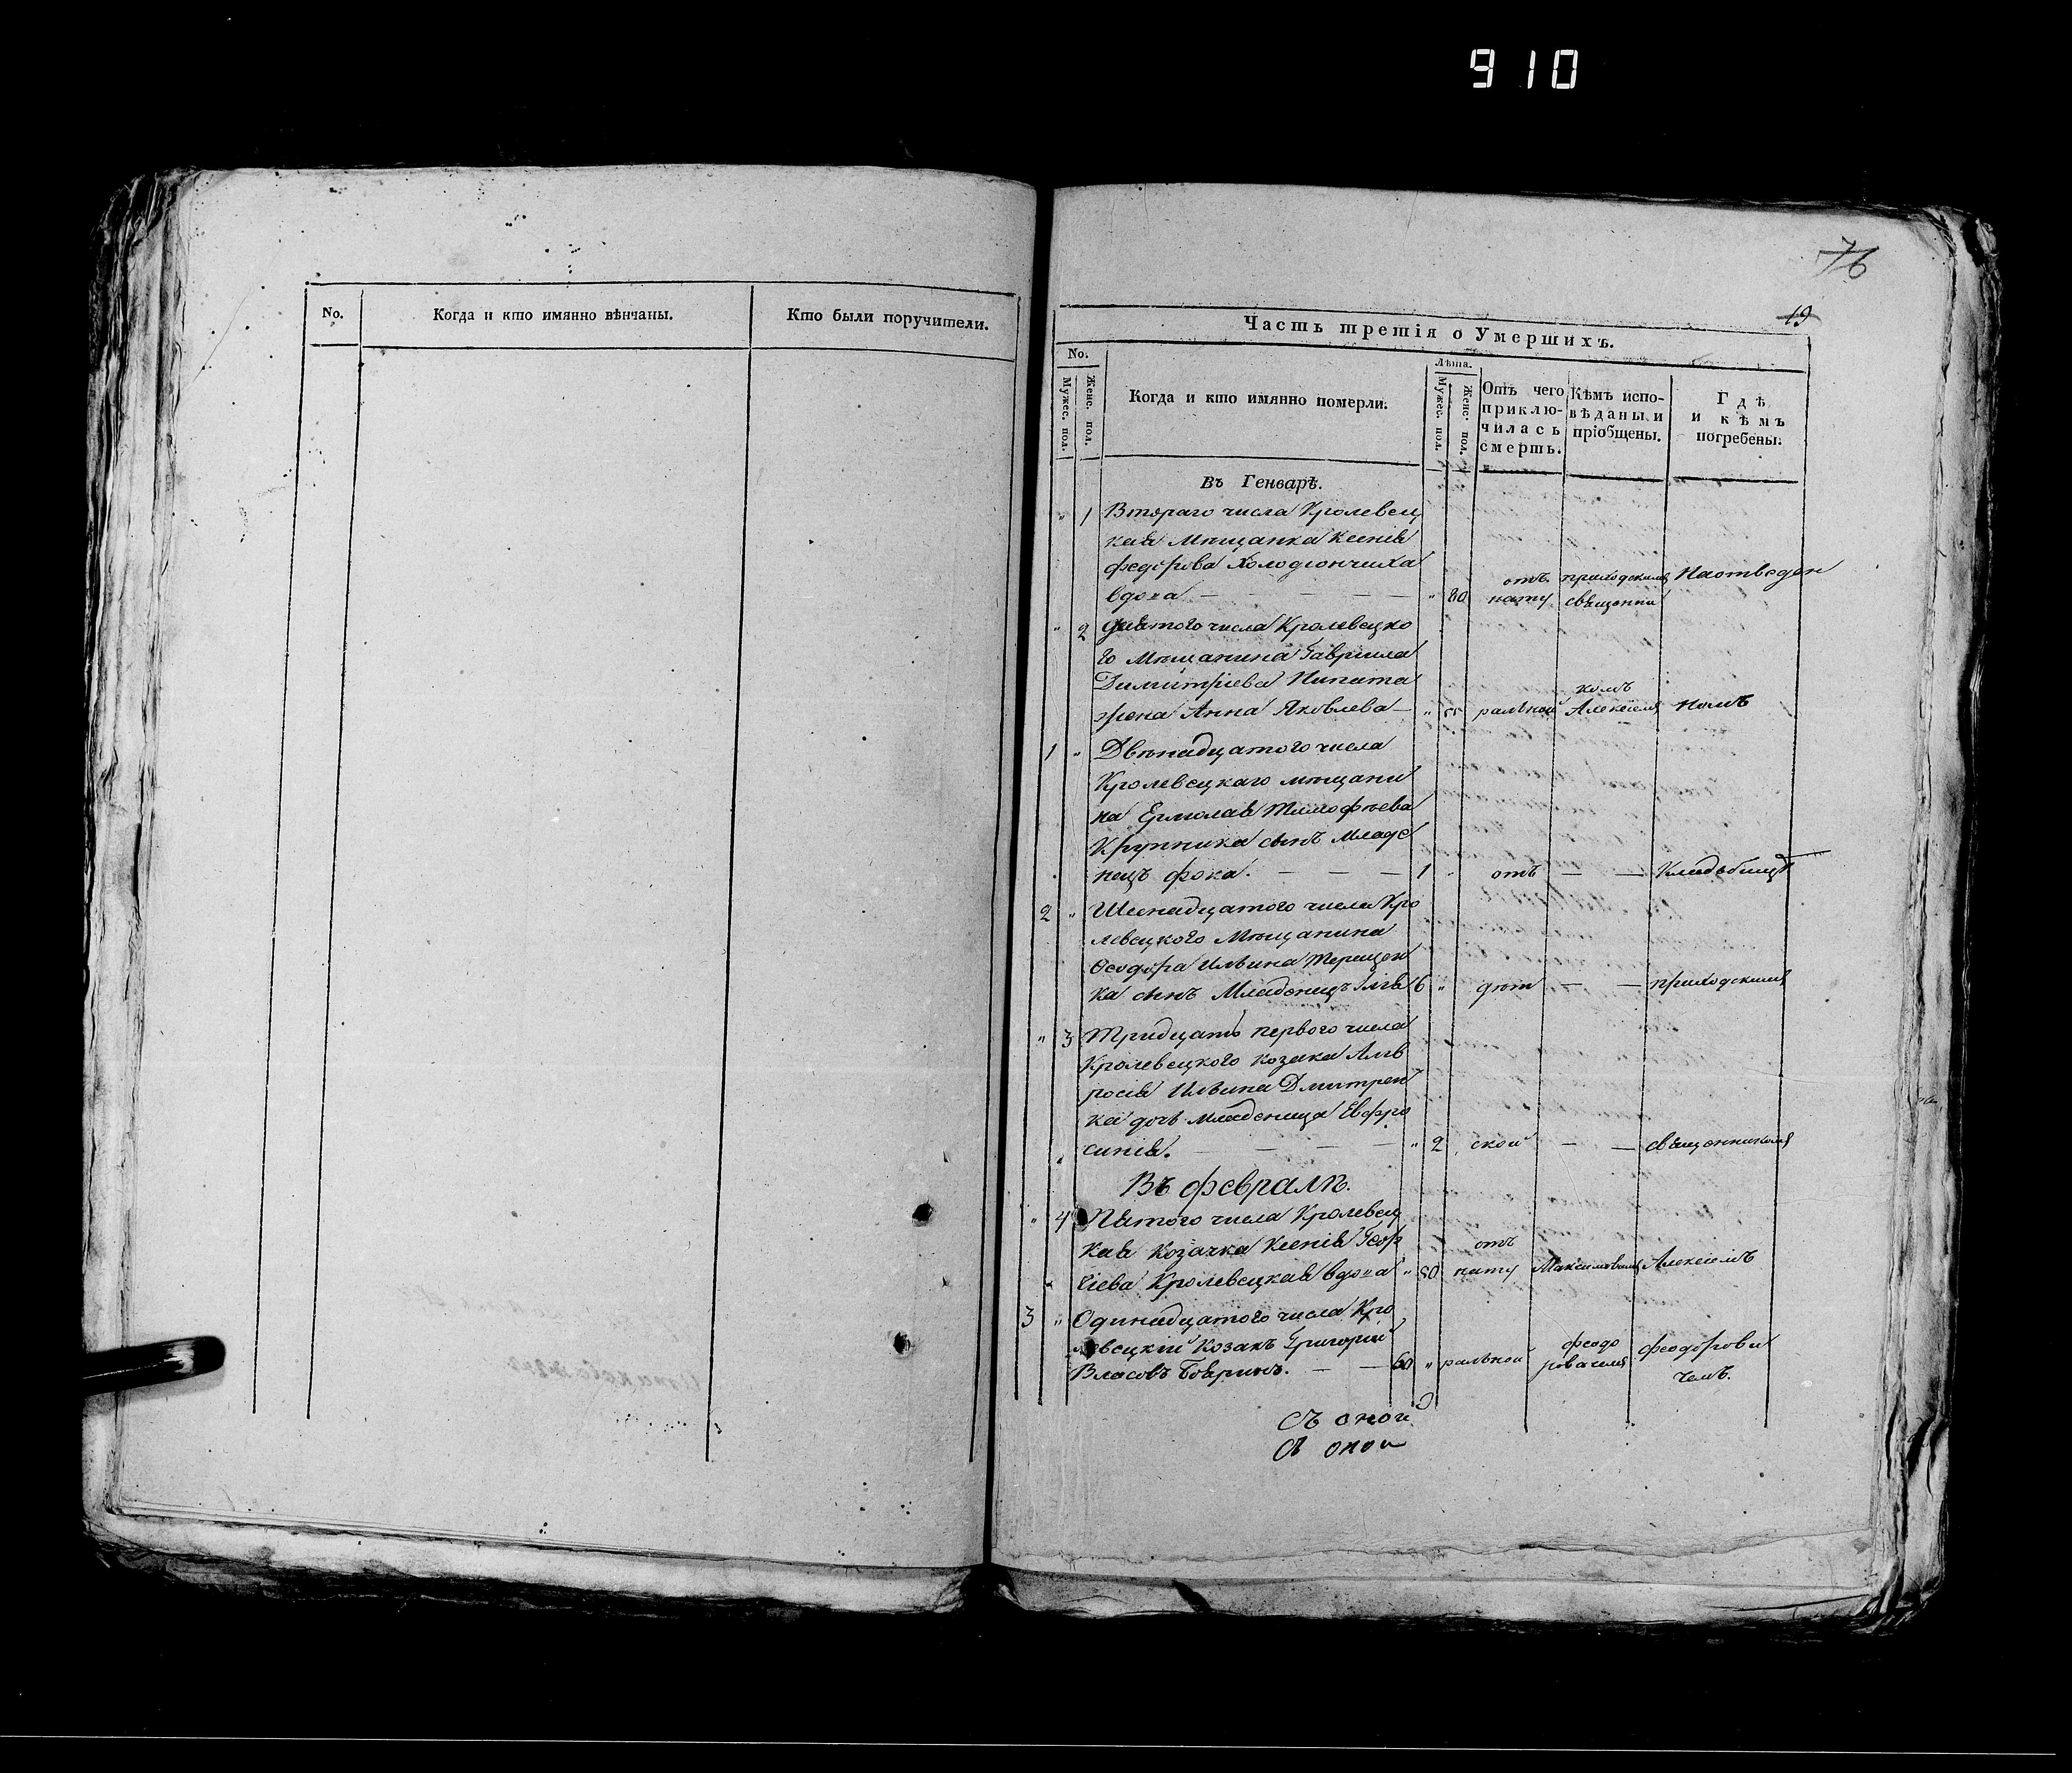 910
No.
Когда и кто имянно вѣнчаны.
Кто были поручители.
76
19
Часть третія о Умершихъ.
No.
Мужес. пол.
Женс. пол.
Когда и кто имянно померли.
Лѣта.
Мужес. пол.
Женс. пол.
Отъ чего
приклю-
чилась
смерть.
Кѣмъ испо-
вѣданы и
пріобщены.
Гдѣ
и кѣмъ
погребены.
Въ Генварѣ.
" 1 Втораго числа Кролевец
кая Мѣщанка Ксенія
Федорова Холодіончиха
вдова — — — — " 80 отъ нату приходскимъ священни На отведен
" 2 Девятого числа Кролевецко
го Мѣщанина Гавриила
Димитріева Нипата
жена Анна Яковлева — " 55 ральной комъ Алексіемъ номъ
1 " Двѣнадцатого числа
Кролевецкаго мѣщани
на Ермолая Тимофѣева
Крупника сынъ Младе
нецъ Фока. — — — 1 " отъ — — Кладбищѣ
2 " Шеснадцатого числа Кро
левецкого Мѣщанина
Феодора Ильина Терещен
ка сынъ Младенецъ Илья 6 " дѣт — — приходскимъ
" 3 Тридцать первого числа
Кролевецкого козака Амв
росія Ильина Дмитрен
ка дочь младеница Евфро
синія. — — — " 2 ской — — священникомъ
Въ Февралѣ.
" 4 Пятого числа Кролевец
кая Козачка Ксенія Геор
гіева Кролевецкая вдова " 80 отъ нату Максимовимъ Алексіемъ
3 " Одинадцатого числа Кро
левецкій Козакъ Григорій
Власовъ Бояринъ. — — 60 " ральной феодо ровичемъ Феодорови чемъ.
Съ оной
Съ оной